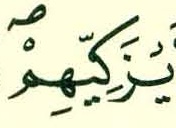 يُزَكِّيْهِمْ ۖ